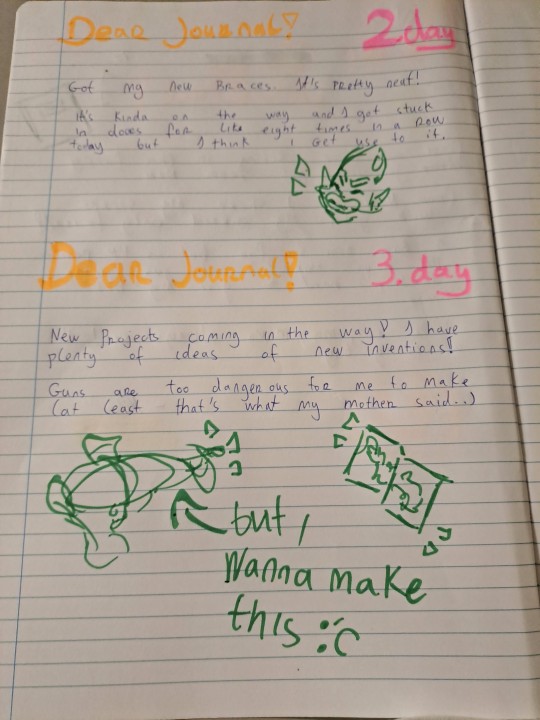 Dear Journal!
2 day
Got my new Braces. It's pretty neat!
It's kinda on the way and I got stuck
In doors for like eight times in a row
today but I think I Get use to it.
Dear Journal!
3. day
New Projects coming in the way! I have
plenty of ideas of new inventions!
Guns are too dangerous for me to make
(at least that's what my mother said..)
but I
Wanna make
this :C